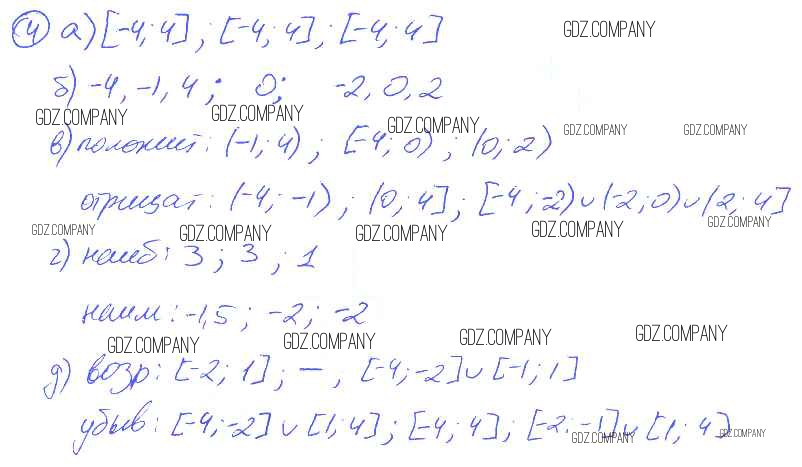 ④ а) [-4; 4] ; [-4; 4] ; [-4; 4]
GDZ.COMPANY
б) -4, -1, 4 ; 0 ; -2, 0, 2
GDZ.COMPANY GDZ.COMPANY GDZ.COMPANY GDZ.COMPANY GDZ.COMPANY
в) положит: (-1; 4) ; [-4; 0) ; (0; 2)
отрицат: (-4; -1) ; (0; 4] ; [-4; -2) ∪ (-2; 0) ∪ (2; 4]
GDZ.COMPANY GDZ.COMPANY GDZ.COMPANY GDZ.COMPANY GDZ.COMPANY
г) наиб: 3 ; 3 ; 1
наим: -1,5 ; -2 ; -2
GDZ.COMPANY GDZ.COMPANY GDZ.COMPANY GDZ.COMPANY
д) возр: [-2; 1] ; — , [-4; -2] ∪ [-1; 1]
убыв: [-4; -2] ∪ [1; 4] ; [-4; 4] ; [-2; -1] ∪ [1; 4]
GDZ.COMPANY GDZ.COMPANY